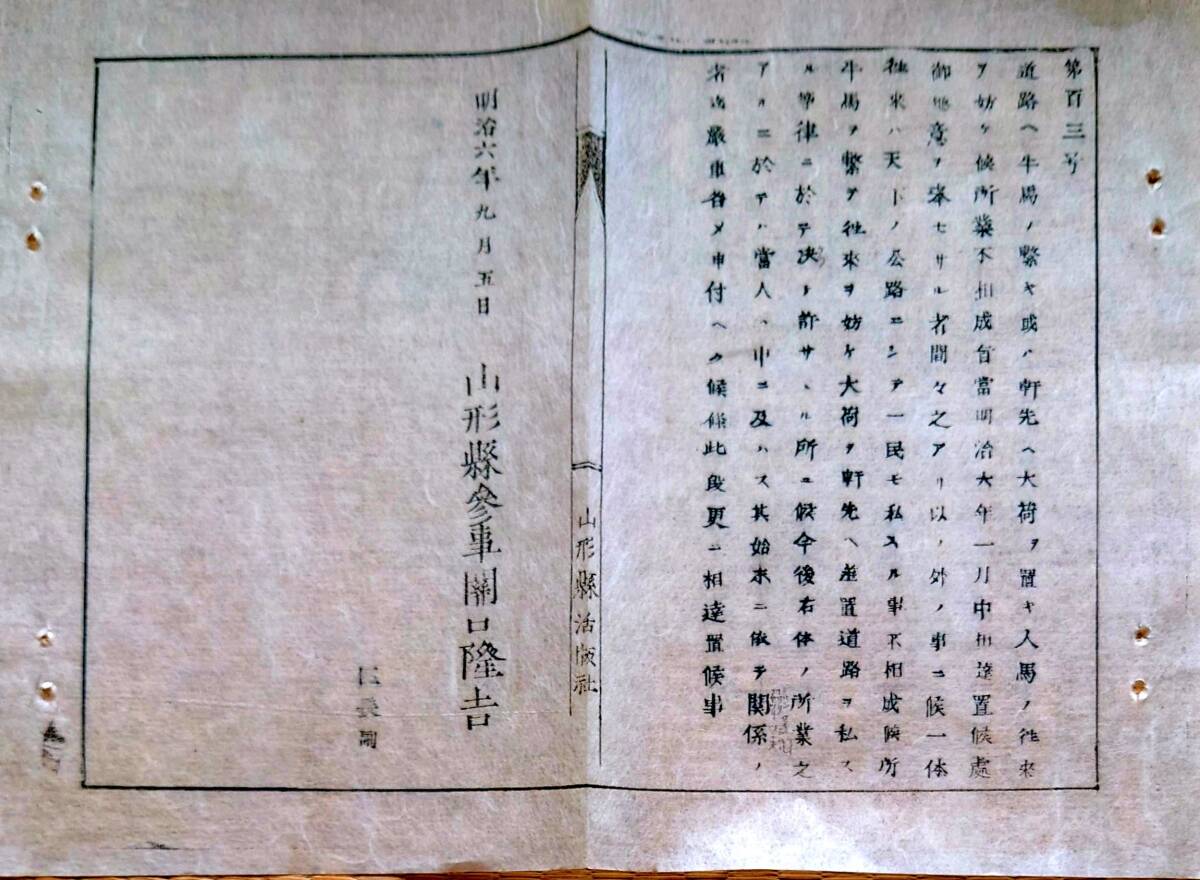 第百三号
道路ヘ牛馬ノ繋キ或ハ軒先ヘ大荷ヲ置キ人馬ノ徃来
ヲ妨ケ候所業不相成旨當明治六年一月中相達置候處
御趣意ヲ奉セサル者間々之アリ以ノ外ノ事ニ候一体
徃来ハ天下ノ公路ニシテ一民モ私スル事不相成候所
牛馬ヲ繋ヲ徃来ヲ妨ケ大荷ヲ軒先ヘ差置道路ヲ私ス
ル等律ニ於テ决ト許サヽル所ニ候今後右体ノ所業之
アルニ於テハ當人ハ申ニ及ハス其始末ニ依テ關係ノ
者迠嚴重咎メ申付ヘク候條此段更ニ相達置候事
山形縣活版社
明治六年九月五日
山形縣參事關口隆吉